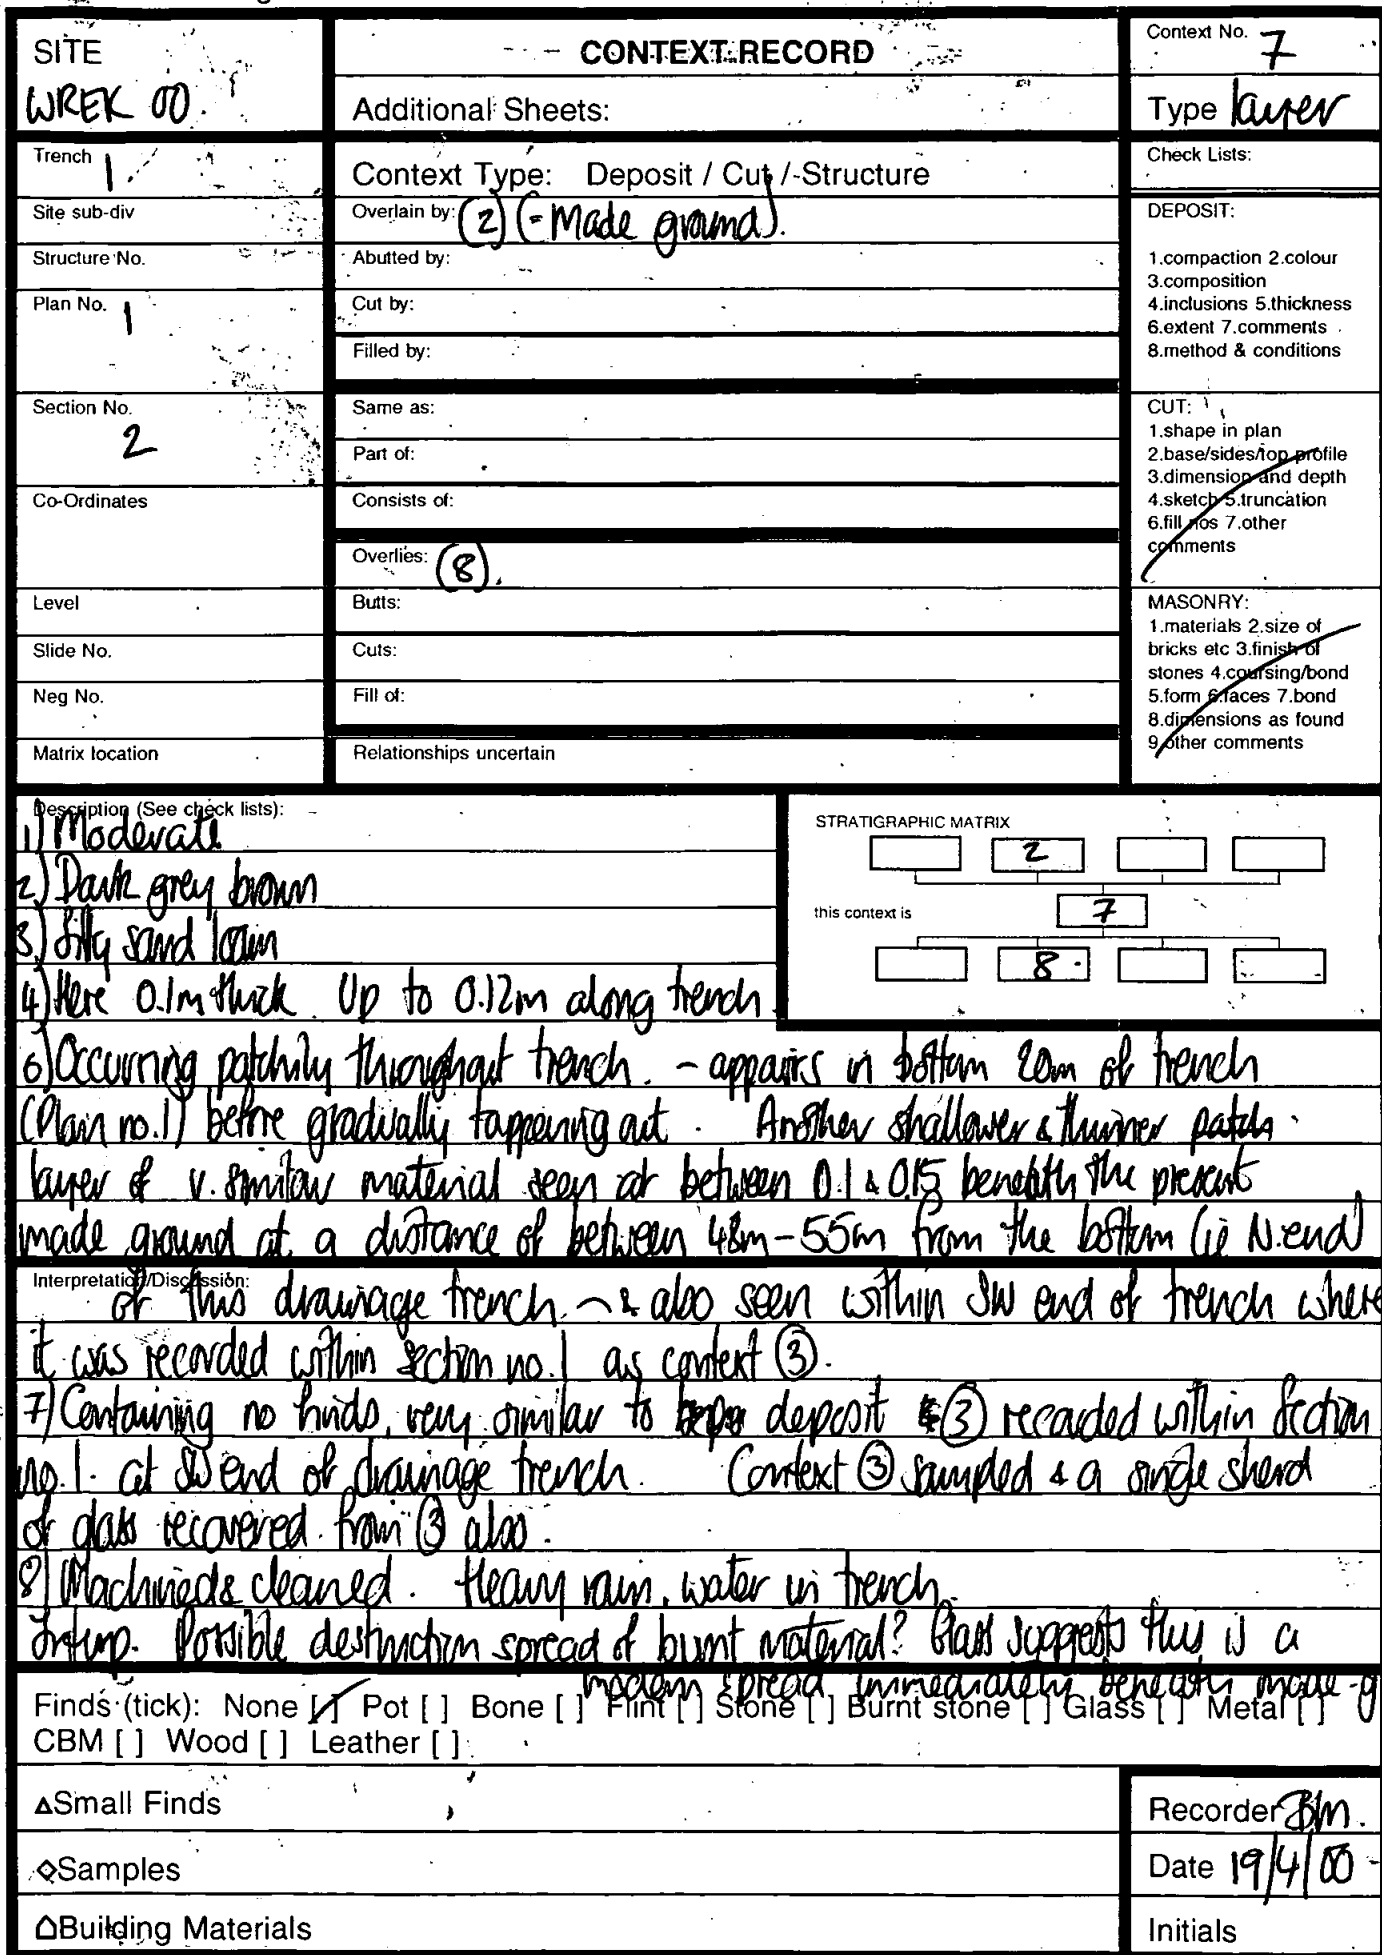 SITE
WREK 00.
CONTEXT RECORD
Additional Sheets:
Context No. 7
Type layer
Trench 1
Site sub-div
Structure No.
Plan No. 1
Section No.
2
Co-Ordinates
Level
Slide No.
Neg No.
Matrix location
Context Type: Deposit / Cut / Structure
Overlain by: (2) (= Made ground).
Abutted by:
Cut by:
Filled by:
Same as:
Part of:
Consists of:
Overlies: (8).
Butts:
Cuts:
Fill of:
Relationships uncertain
Check Lists:
DEPOSIT:
1.compaction 2.colour
3.composition
4.inclusions 5.thickness
6.extent 7.comments
8.method & conditions
CUT:
1.shape in plan
2.base/sides/top profile
3.dimension and depth
4.sketch 5.truncation
6.fill nos 7.other
comments
MASONRY:
1.materials 2.size of
bricks etc 3.finish of
stones 4.coursing/bond
5.form 6.faces 7.bond
8.dimensions as found
9.other comments
Description (See check lists):
1) Moderate
2) Dark grey brown
3) Silty sand loam
4) Here 0.1m thick. Up to 0.12m along trench
6) Occurring patchily throughout trench. - appairs in bottom 20m of trench
(Plan no.1) before gradually tappering out. Another shallower & thinner patch
layer of v. similar material seen at between 0.1 & 0.15 beneath the present
made ground at a distance of between 48m - 55m from the bottom (ie N.end)
STRATIGRAPHIC MATRIX
2
this context is 7
8
Interpretation/Discussion:
of this drainage trench - & also seen within SW end of trench where
it was recorded within section no.1 as context (3).
7) Containing no finds, very similar to deposit (3) recorded within Section
no.1. at SW end of drainage trench. Context (3) sampled & a single sherd
of glass recovered from (3) also.
8) Machined & cleaned. Heavy rain, water in trench.
Possible destruction spread of burnt material? Glass suggests this is a
modern spread immediately beneath made-g
Finds (tick): None [/] Pot [ ] Bone [ ] Flint [ ] Stone [ ] Burnt stone [ ] Glass [ ] Metal [ ]
CBM [ ] Wood [ ] Leather [ ]
△Small Finds
◇Samples
Building Materials
Recorder BM.
Date 19/4/00
Initials